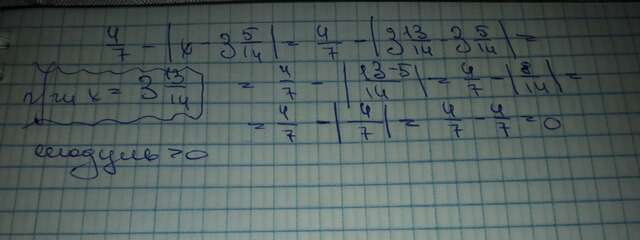 4/7 - |x - 3 5/14| = 4/7 - |3 13/14 - 3 5/14| =
при x = 3 13/14
= 4/7 - |13-5/14| = 4/7 - |8/14| =
= 4/7 - |4/7| = 4/7 - 4/7 = 0
модуль >0